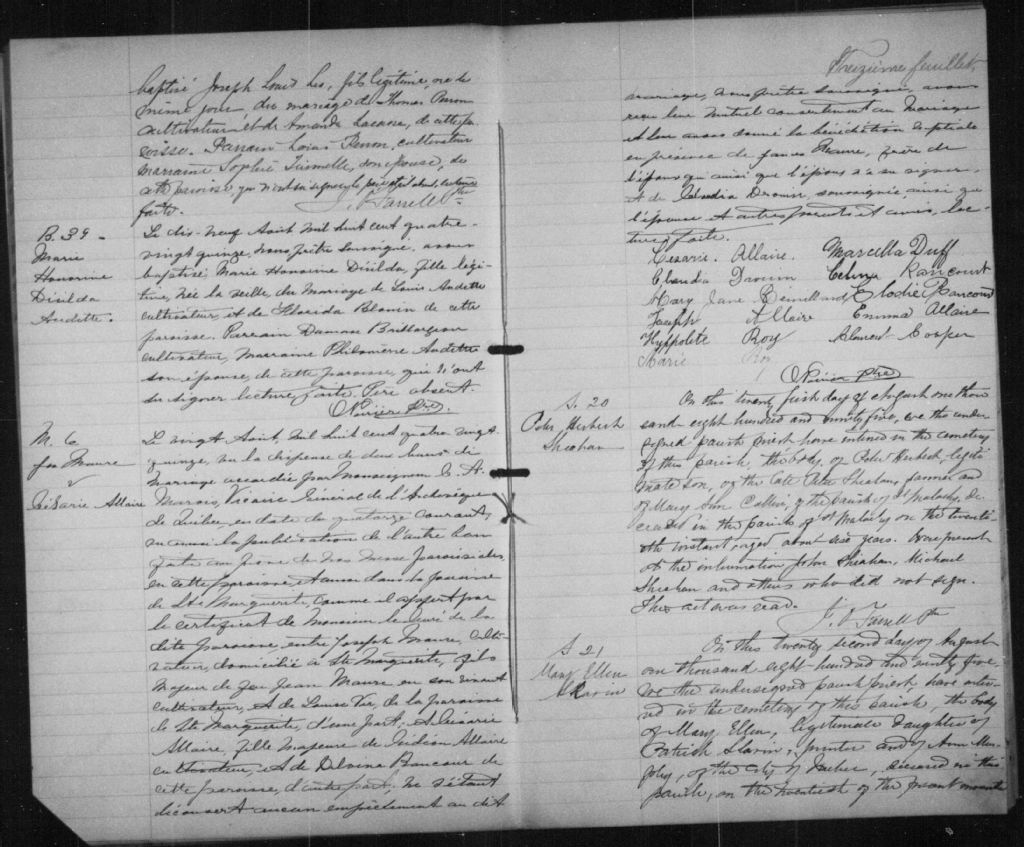 baptisé Joseph Louis Léo, fils légitime, né le
même jour du mariage de Thomas Perron
cultivateur et de Amanda Lacasse, de cette pa
roisse. Parrain Louis Perron, cultivateur
marraine Sophie son épouse, de
cette paroisse, qui n'ont su signer, le père était absent, lecture
faite. J. O'Farrell Ptre
B. 39 -
Marie
Honorine
Divilda
Audette.
Le dix-neuf Août mil huit cent quatre-
vingt quinze, nous prêtre soussigné, avons
baptisé Marie Honorine Divilda, fille légi-
time, née la veille, du mariage de Louis Audette
cultivateur, et de Florida Blouin de cette
paroisse. Parrain Damase
cultivateur, Marraine Philomène Audette
son épouse, de cette paroisse, qui n'ont
su signer lecture faite. Père absent.
Poirier Ptre.
M. 6
Jos Maure
&
Césarie Allaire
Le vingt Août, mil huit cent quatre vingt
quinze, vu la dispense de deux bans de
mariage accordée par Monseigneur C. A.
Marois, Vicaire Général de l'Archevêque
de Québec en date du quatorze courant,
vu aussi la publication de l'autre ban
faite au prône de nos messes paroissiales
en cette paroisse, et aussi dans la paroisse
de Ste Marguerite, comme il appert par
le certificat de Monsieur le Curé de la
dite paroisse, entre Joseph Maure, culti-
vateur, domicilié à Ste Marguerite, fils
majeur de feu Jean Maure en son vivant
cultivateur, et de Louise de la paroisse
de Ste Marguerite, d'une part, et Césarie
Allaire, fille majeure de Gédéon Allaire
cultivateur, et de de
cette paroisse, d'autre part, ne s'étant
découvert aucun empêchement au dit
Treizième feuillet.
mariage, nous prêtre soussigné, avons
reçu leur mutuel consentement au mariage
et leur avons donné la bénédiction nuptiale
en présence de Maure, frère de
l'époux qui ainsi que l'époux n'a su signer,
et de Claudia Drouin, soussignée, ainsi que
l'épouse et autres parents et amis, lec-
ture faite.
Césarie. Allaire. Marcella Duff
Claudia Drouin Celina Rancourt
Mary Jane Elodie Rancourt
Joseph Allaire Emma Allaire
Hyppolite Roy Cooper
Marie Roy
Poirier Ptre
S. 20
Peter Herbert
Sheahan
On this twenty first day of August one thou
sand eight hundred and ninety five, we the under
signed parish priest have interred in the cemetery
of this parish, the body of Peter Herbert, legiti
mate son, of the late Peter Sheahan, farmer and
of Mary Ann of the parish of St Malachy, de
ceased in the parish of St Malachy on the twenti
eth instant, aged about six years. Were present
at the inhumation John Sheahan, Michael
Sheahan and others who did not sign.
This act was read.
J. O'Farrell Ptre
S 21
Mary Ellen
Slavin
On this twenty second day of August
one thousand eight hundred and ninety five,
we the undersigned parish priest, have inter-
red in the cemetery of this parish, the body
of Mary Ellen, legitimate daughter of
Patrick Slavin, printer and of Ann Mur-
phy, of the city of Quebec, deceased in this
parish, on the twentieth of the present month